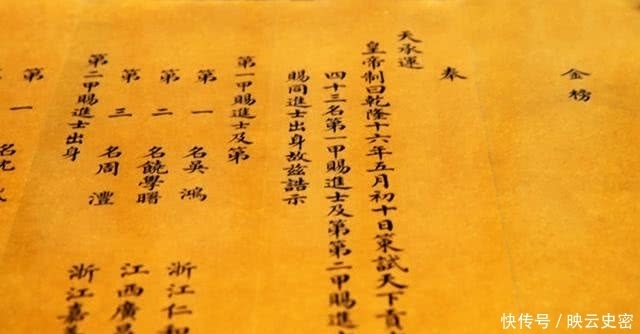 金榜
奉
天承運
皇帝制曰乾隆十六年五月初十日策試天下貢
四十三名第一甲賜進士及第第二甲賜進
賜同進士出身故兹誥示
第一甲賜進士及第
第一名吳鴻 浙江仁和
第二名饒學曙 江西廣昌
第三名周灃 浙江嘉
第二甲賜進士出身
第一名沈
快传号/映云史密